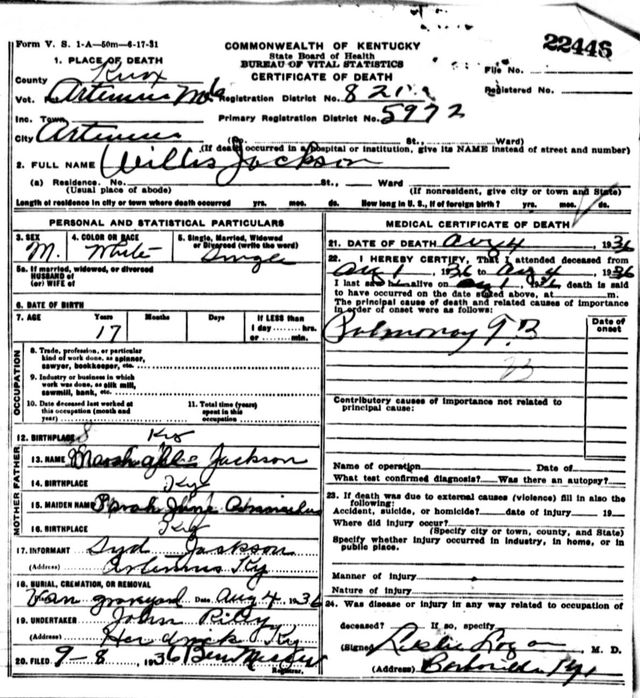 Form V. S. 1-A—50m—6-17-31
COMMONWEALTH OF KENTUCKY
State Board of Health
BUREAU OF VITAL STATISTICS
CERTIFICATE OF DEATH
22446
File No.
Registered No.
1. PLACE OF DEATH
County Knox
Vot. Artemus Registration District No. 821
Inc. Town Primary Registration District No. 5972
City Artemus (No. St., Ward)
(If death occurred in a hospital or institution, give its NAME instead of street and number)
2. FULL NAME Willis Jackson
(a) Residence. No. St., Ward
(Usual place of abode) (If nonresident, give city or town and State)
Length of residence in city or town where death occurred yrs. mos. ds. How long in U. S., if of foreign birth? yrs. mos. ds.
PERSONAL AND STATISTICAL PARTICULARS
3. SEX M. 4. COLOR OR RACE White 5. Single, Married, Widowed or Divorced (write the word) Single
5a. If married, widowed, or divorced
HUSBAND of
(or) WIFE of
6. DATE OF BIRTH
7. AGE Years 17 Months Days If LESS than
1 day hrs.
or min.
OCCUPATION
8. Trade, profession, or particular
kind of work done, as spinner,
sawyer, bookkeeper, etc.
9. Industry or business in which
work was done, as silk mill,
sawmill, bank, etc.
10. Date deceased last worked at
this occupation (month and
year)
11. Total time (years)
spent in this
occupation
12. BIRTHPLACE Ky
FATHER
13. NAME Jackson
14. BIRTHPLACE Ky
MOTHER
15. MAIDEN NAME Jane
16. BIRTHPLACE Ky
17. INFORMANT Syd Jackson
(Address) Artemus Ky
18. BURIAL, CREMATION, OR REMOVAL
graveyard Date Aug 4 1936
19. UNDERTAKER John Riley
(Address) Ky
20. FILED 9-8 1936 Ben
Registrar.
MEDICAL CERTIFICATE OF DEATH
21. DATE OF DEATH Aug 4 1936
22. I HEREBY CERTIFY, That I attended deceased from
Aug 1 1936 to Aug 4 1936
I last saw h alive on Aug 1 1936 death is said
to have occurred on the date stated above, at m.
The principal cause of death and related causes of importance
in order of onset were as follows:
Date of
onset
Pulmonary T. B
23
Contributory causes of importance not related to
principal cause:
Name of operation Date of
What test confirmed diagnosis? Was there an autopsy?
23. If death was due to external causes (violence) fill in also the
following:
Accident, suicide, or homicide? date of injury 19
Where did injury occur?
(Specify city or town, county, and State)
Specify whether injury occurred in industry, in home, or in
public place.
Manner of injury
Nature of injury
24. Was disease or injury in any way related to occupation of
deceased? If so, specify
(Signed) Leslie Logan M. D.
(Address) Ky